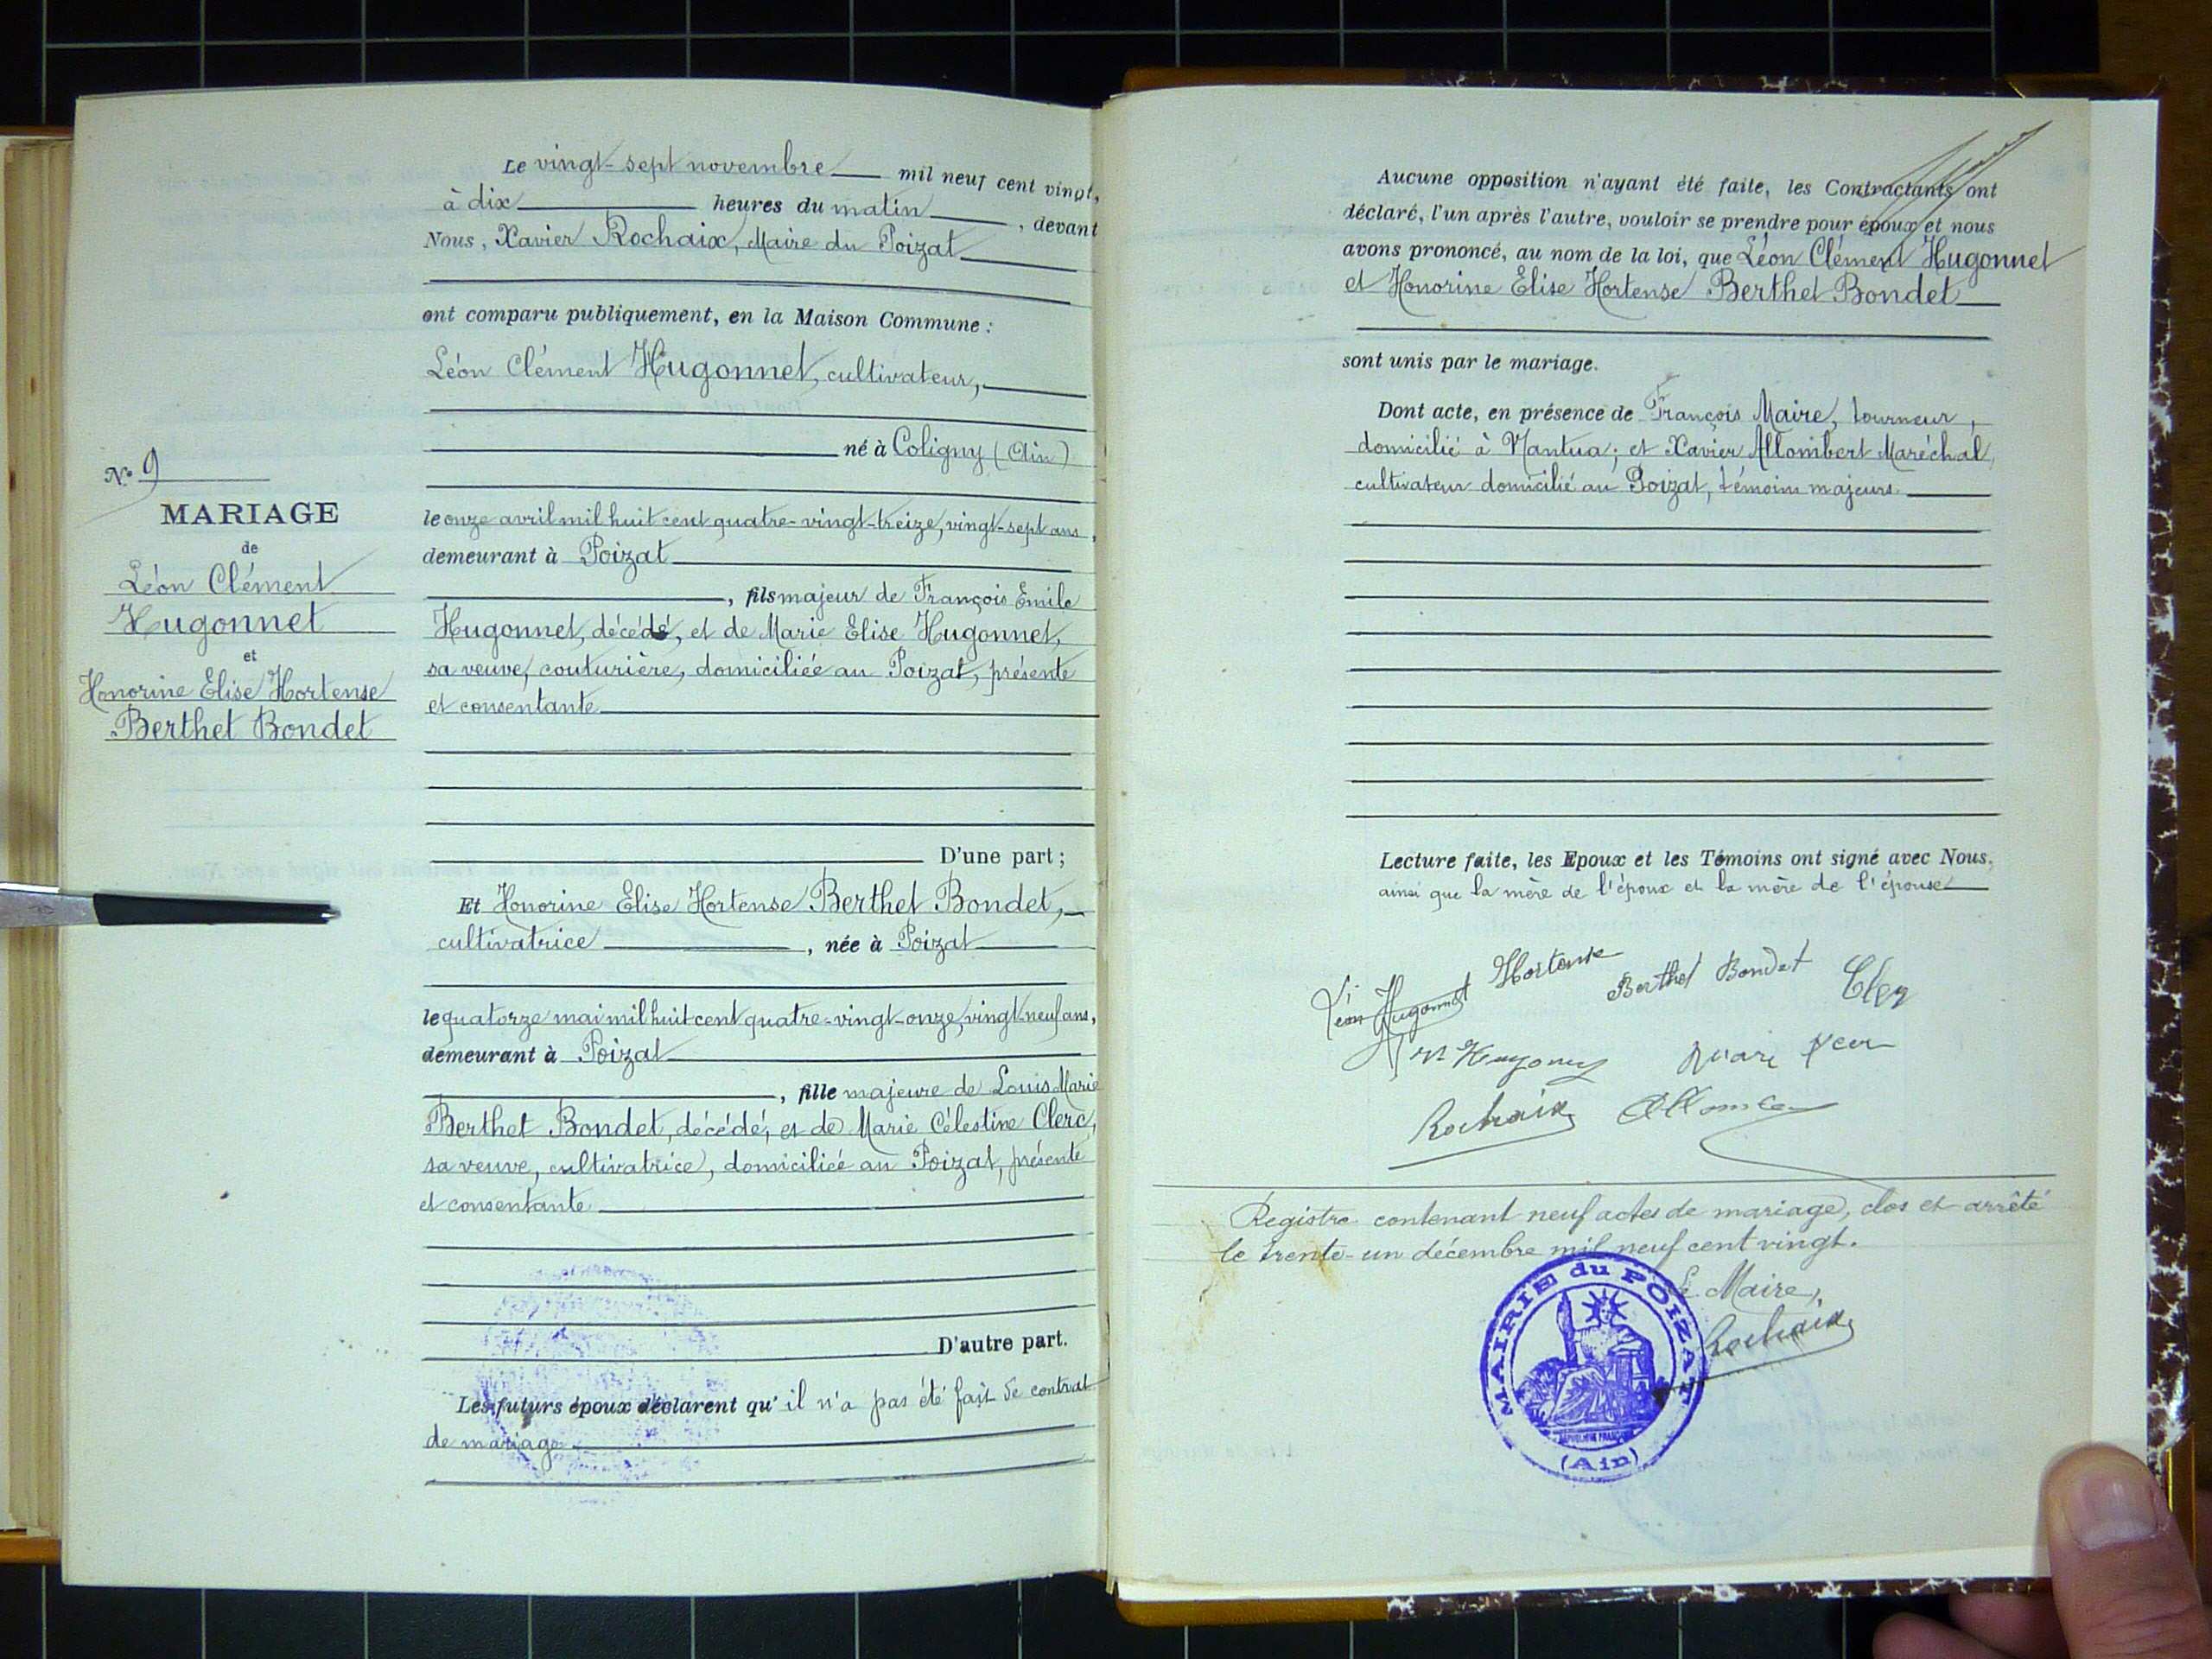 Le vingt-sept novembre mil neuf cent vingt,
à dix heures du matin, devant
Nous, Xavier Rochaix, Maire du Poizat
ont comparu publiquement, en la Maison Commune :
Léon Clément Hugonnet, cultivateur,
né à Coligny (Ain)
le onze avril mil huit cent quatre-vingt-treize, vingt-sept ans,
demeurant à Poizat
, fils majeur de François Emile
Hugonnet, décédé, et de Marie Elise Hugonnet,
sa veuve, couturière, domiciliée au Poizat, présente
et consentante
D'une part ;
Et Honorine Elise Hortense Berthet Bondet,
cultivatrice, née à Poizat
le quatorze mai mil huit cent quatre-vingt-onze, vingt-neuf ans,
demeurant à Poizat
, fille majeure de Louis Marie
Berthet Bondet, décédé, et de Marie Célestine Clerc,
sa veuve, cultivatrice, domiciliée au Poizat, présente
et consentante
D'autre part.
Les futurs époux déclarent qu'il n'a pas été fait de contrat
de mariage.
N° 9
MARIAGE
de
Léon Clément
Hugonnet
et
Honorine Elise Hortense
Berthet Bondet
Aucune opposition n'ayant été faite, les Contractants ont
déclaré, l'un après l'autre, vouloir se prendre pour époux et nous
avons prononcé, au nom de la loi, que Léon Clément Hugonnet
et Honorine Elise Hortense Berthet Bondet
sont unis par le mariage.
Dont acte, en présence de François Maire, tourneur,
domicilié à Nantua; et Xavier Allombert Maréchal,
cultivateur domicilié au Poizat, témoins majeurs.
Lecture faite, les Epoux et les Témoins ont signé avec Nous,
ainsi que la mère de l'époux et la mère de l'épouse
Léon Hugonnet Hortense Berthet Bondet
Rochaix
Registre contenant neuf actes de mariage, clos et arrêté
le trente-un décembre mil neuf cent vingt.
Le Maire,
Rochaix
MAIRIE du POIZAT
RÉPUBLIQUE FRANÇAISE
(Ain)